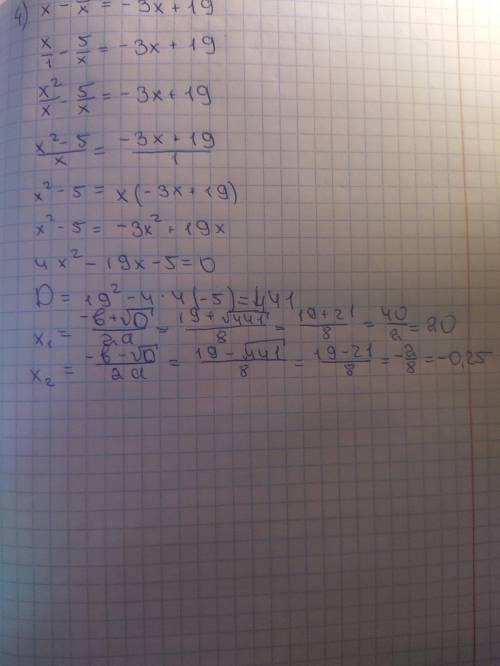 4) x - /x = -3x + 19
x/1 - 5/x = -3x + 19
x²/x - 5/x = -3x + 19
(x² - 5)/x = (-3x + 19)/1
x² - 5 = x(-3x + 19)
x² - 5 = -3x² + 19x
4x² - 19x - 5 = 0
D = 19² - 4 · 4(-5) = 441
x₁ = (-b + √D)/2a = (19 + √441)/8 = (19 + 21)/8 = 40/2 = 20
x₂ = (-b - √D)/2a = (19 - √441)/8 = (19 - 21)/8 = -2/8 = -0,25